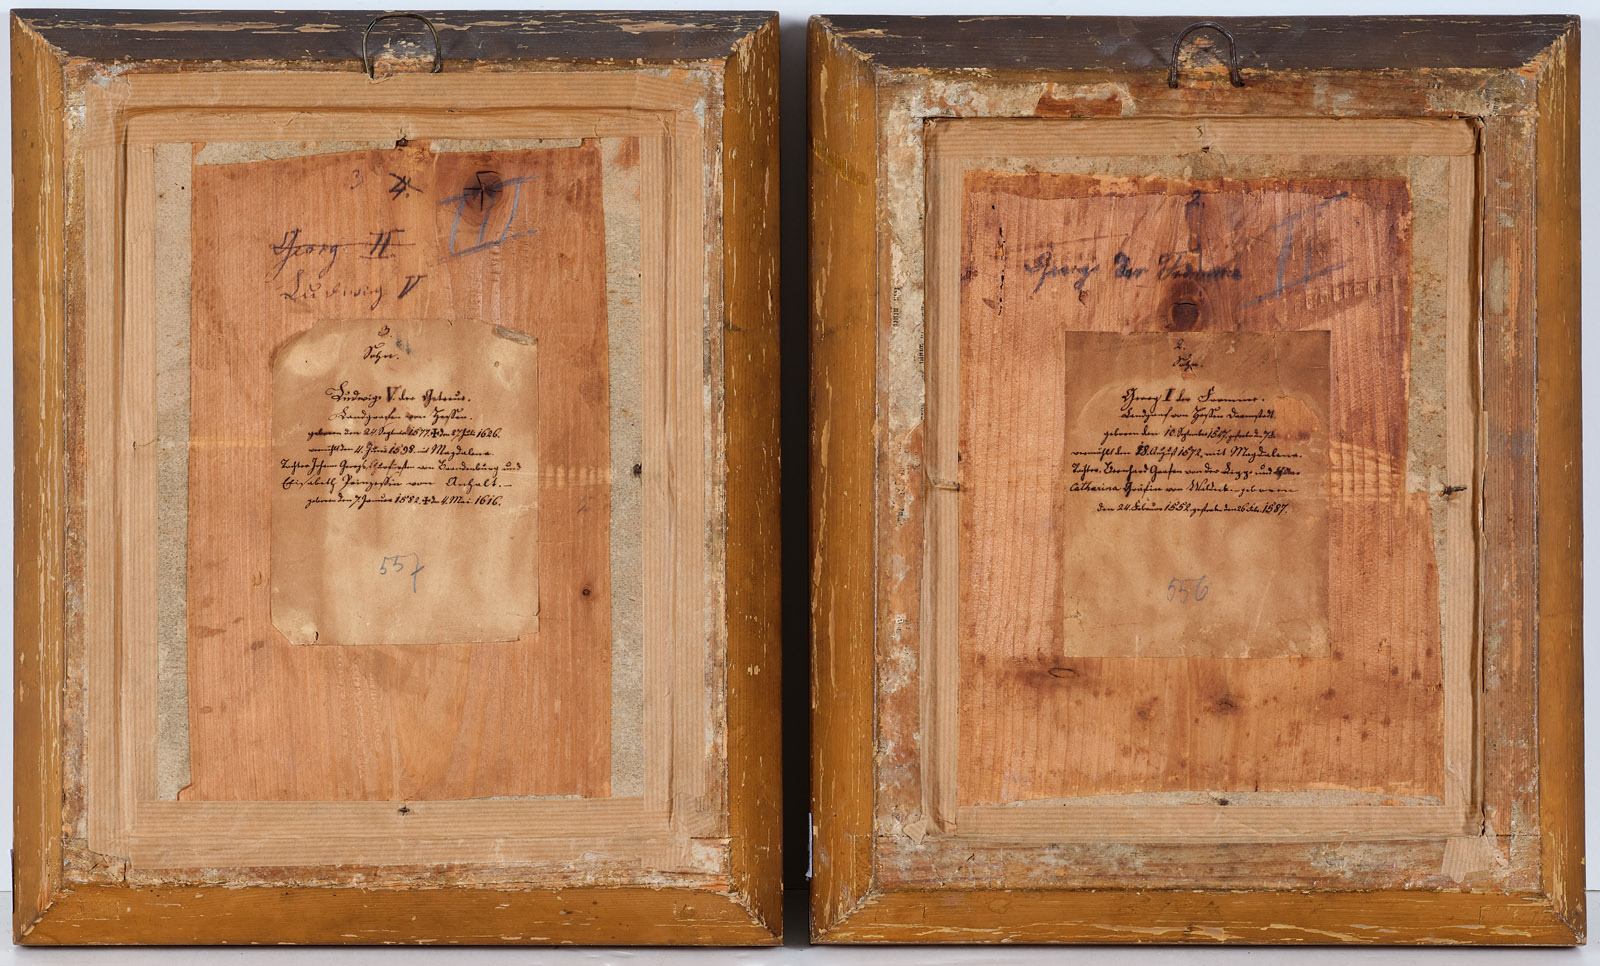 3 4.
III
Georg II
Ludwig V
3.
Sohn.
Ludwig V. der Getreue.
Landgrafen von Hessen.
geboren den 24. Septembr 1577. ✝ den 27. Juli 1626.
vermählt den 4. Juni 1598. mit Magdalena.
Tochter Johann Georgs, Churfürsten von Brandenburg und
Elisabeth Prinzessin von Anhalt. –
geboren den 7. Januar 1582. ✝ den 4. Mai 1616.
557
2.
II
Georg der Fromme
2.
Sohn.
Georg I der Fromme.
Landgraf von Hessen Darmstadt.
geboren den 10. September 1547. gestorben
vermählt den 18. August 1572. mit Magdalena.
Tochter Bernhard Grafen von der Lippe und
Catharina Gräfin von Waldeck geboren
den 24. Februar 1552. gestorben den 26. Feb. 1587.
556